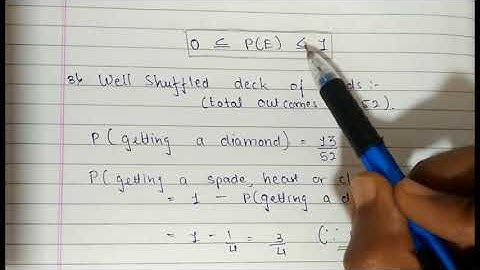 0 ≤ P(E) ≤ 1
Well Shuffled deck of ds :-
(total outcomes 52).
P( getting a diamond) = 13/52
P( getting a spade, heart or
= 1 - P(getting a d
= 1 - 1/4 = 3/4 (∵